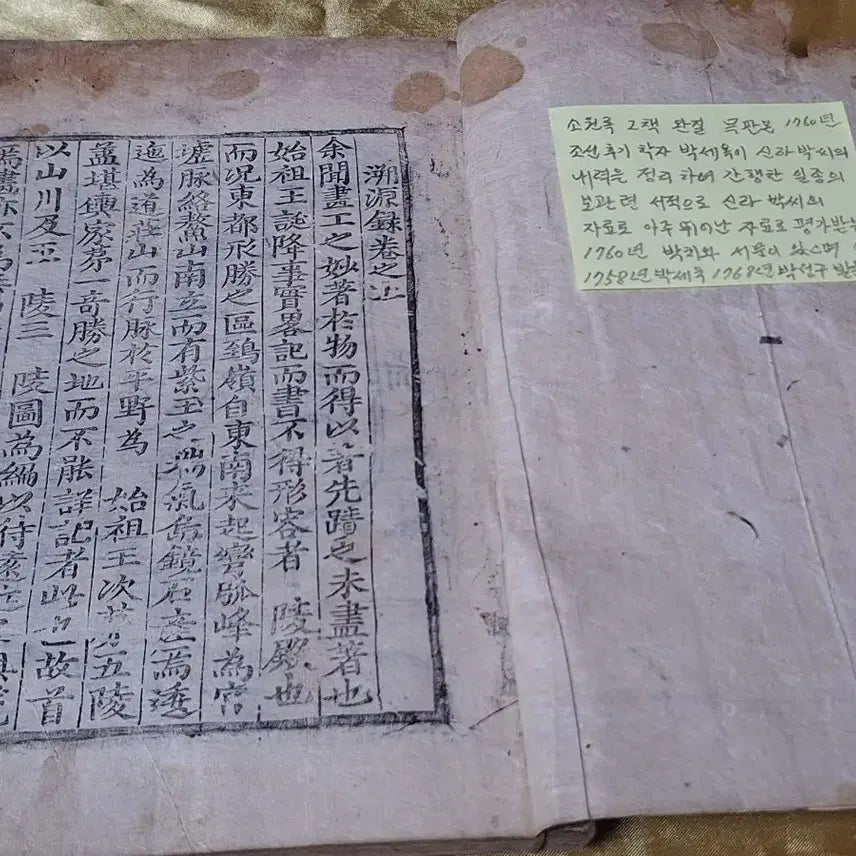 溯源錄卷之上
余聞畫工之妙著於物而得以著先蹟之未盡著也
始祖王誕降事實畧記而書不得形容者 陵殿也
而况東都形勝之區鵄嶺自東南來起彎孤峰為宮
墟脉絡鰲山南立而有紫玉之仙氣鏡石為
迤為道莊山而行脉於平野為 始祖王次五陵
盖堪輿家茅一奇勝之地而不能詳記者此也故首
以山川及五 陵三 陵圖為編以待
為畫亦不為
소원록 2책 완질 목판본 1760년
조선후기 학자 박세욱이 신라박씨의
내력을 정리하여 간행한 일종의
보관련 서적으로 신라 박씨의
자료로 아주 뛰어난 자료로 평가받는
1760년 서문이 있으며
1758년 박세욱 1768년 박선구 발문